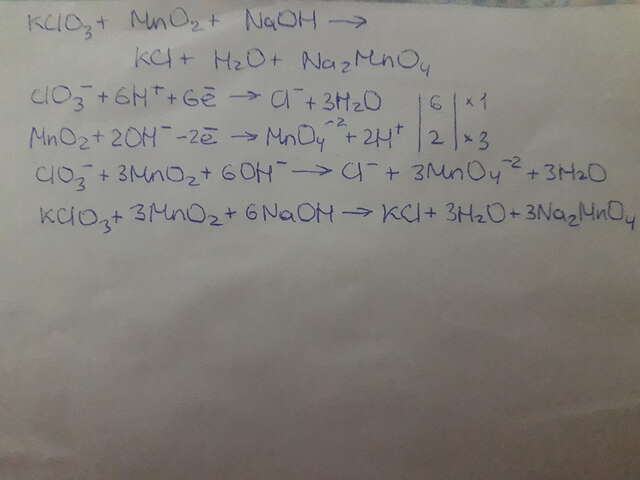 KClO₃ + MnO₂ + NaOH →
KCl + H₂O + Na₂MnO₄
ClO₃⁻ + 6H⁺ + 6ē → Cl⁻ + 3H₂O | 6 | ×1
MnO₂ + 2OH⁻ - 2ē → MnO₄⁻² + 2H⁺ | 2 | ×3
ClO₃⁻ + 3MnO₂ + 6OH⁻ → Cl⁻ + 3MnO₄⁻² + 3H₂O
KClO₃ + 3MnO₂ + 6NaOH → KCl + 3H₂O + 3Na₂MnO₄